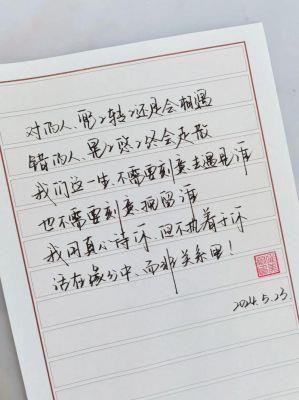 对的人、兜々转々还是会相遇
错的人、晃々悠々终会走散
我们这一生、不需要刻意去遇见谁
也不需要刻意挽留谁
我用真心待你、但不执着于你
活在缘分中、而非关系里！
2024.5.23